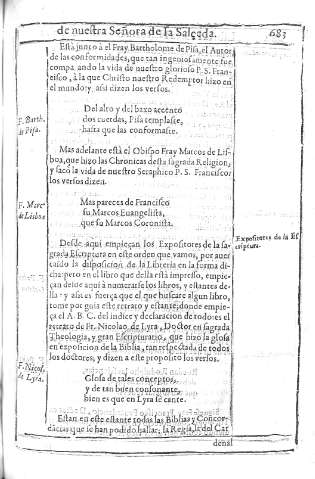 de nuestra Señora de la Salceda. 683
Està junto à el Fray Bartholome de Pisa, el Autor
de las conformidades, que tan ingeniosamente fue
compa ando la vida de nuestro glorioso P. S. Fran-
cisco, à la que Christo nuestro Redemptor hizo en
el mundo: y assi dizen los versos.
F. Barth.
de Pisa.
Del alto y del baxo accento
dos cuerdas, Pisa templaste,
hasta que las conformaste.
Mas adelante està el Obispo Fray Marcos de Lis-
boa, que hizo las Chronicas desta sagrada Religion,
y sacò la vida de nuestro Seraphico P. S. Francisco:
los versos dizen.
F. Marc.
de Lisboa
Mas pareces de Francisco
su Marcos Euangelista,
que su Marcos Coronista.
Expositores de la Es
criptura.
Desde aqui empieçan los Expositores de la sa-
grada Escriptura en este orden que vamos, por auer
sido la disposicion de la Libreria en la forma di-
cha: pero en el libro que della està impresso, empie-
çan desde aqui à numerarse los libros, y estantes de-
lla: y assi es fuerça que el que buscare algun libro,
tome por guia este retrato y estante, donde empie-
ça el A. B. C. del indice y declaracion de todo: es el
retrato de Fr. Nicolao de Lyra, Doctor en sagrada
Theologia, y gran Escripturario, que hizo la glosa
en exposicion de la Biblia, tan respectada de todos
los doctores, y dizen a este proposito los versos.
F. Nicol.
de Lyra.
Glosa de tales conceptos,
y de tan buen consonante,
bien es que en Lyra se cante.
Estan en este estante todas las Biblias y Concor-
dancias que se han podido hallar, la Regia, la del Car
denal